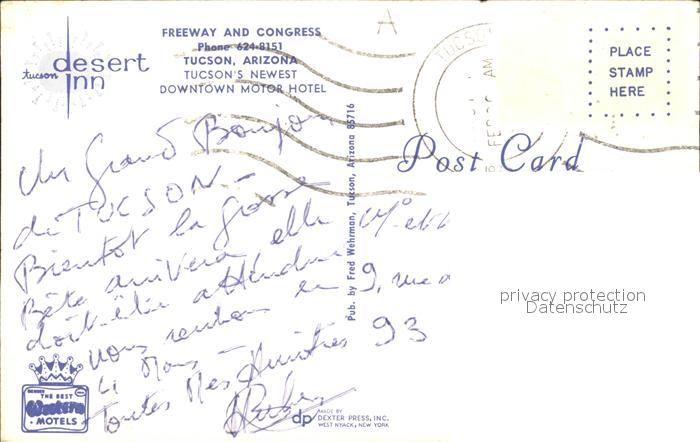 desert
tucson Inn
FREEWAY AND CONGRESS
Phone 624-8151
TUCSON, ARIZONA
TUCSON'S NEWEST
DOWNTOWN MOTOR HOTEL
PLACE
STAMP
HERE
TUCSON
FEB
AM
Post Card
Un Grand Bonjour
de TUCSON -
Bientôt la Grosse
Bête arrivera elle
doit être
nous rentrons
4 Nous -
Toutes Mes Amitiés
9, rue
93
Pub. by Fred Wehrman, Tucson, Arizona 85716
privacy protection
Datenschutz
MEMBER
THE BEST
Western
MOTELS
dp MADE BY
DEXTER PRESS, INC.
WEST NYACK, NEW YORK